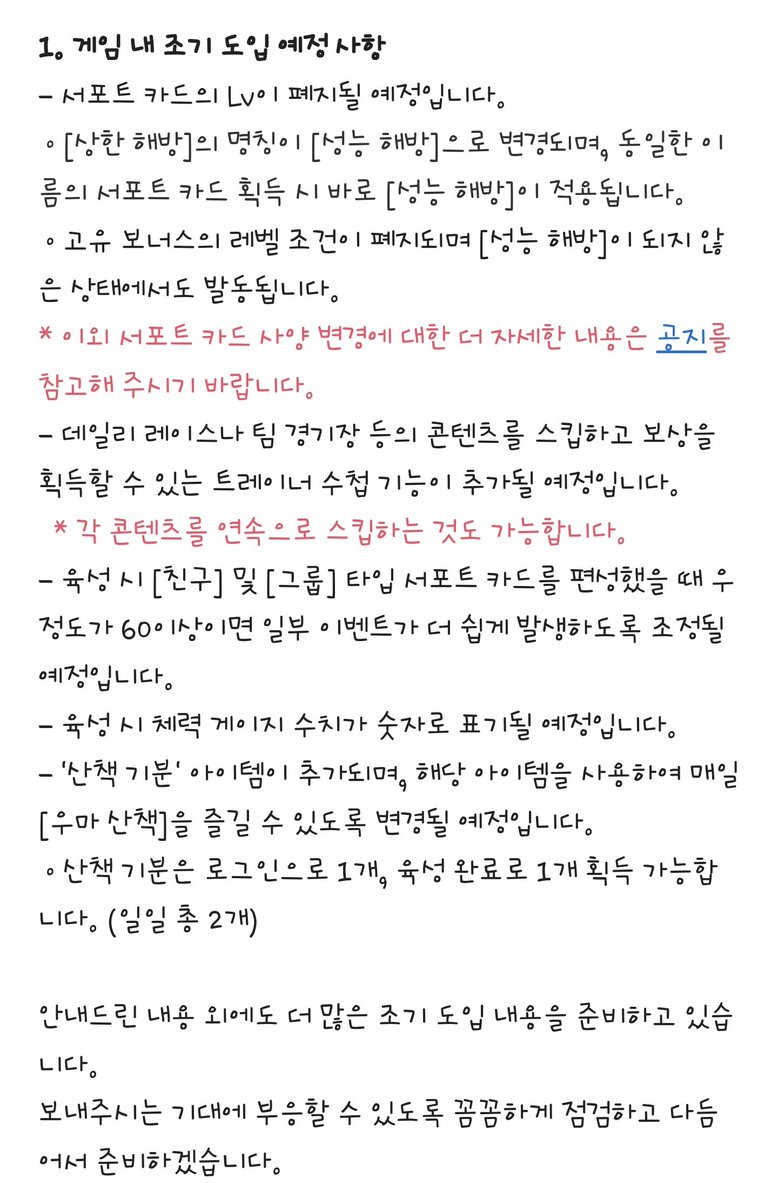 1. 게임 내 조기 도입 예정 사항
- 서포트 카드의 Lv이 폐지될 예정입니다.
◦ [상한 해방]의 명칭이 [성능 해방]으로 변경되며, 동일한 이
름의 서포트 카드 획득 시 바로 [성능 해방]이 적용됩니다.
◦ 고유 보너스의 레벨 조건이 폐지되며 [성능 해방]이 되지 않
은 상태에서도 발동됩니다.
* 이외 서포트 카드 사양 변경에 대한 더 자세한 내용은 공지를
참고해 주시기 바랍니다.
- 데일리 레이스나 팀 경기장 등의 콘텐츠를 스킵하고 보상을
획득할 수 있는 트레이너 수첩 기능이 추가될 예정입니다.
* 각 콘텐츠를 연속으로 스킵하는 것도 가능합니다.
- 육성 시 [친구] 및 [그룹] 타입 서포트 카드를 편성했을 때 우
정도가 60이상이면 일부 이벤트가 더 쉽게 발생하도록 조정될
예정입니다.
- 육성 시 체력 게이지 수치가 숫자로 표기될 예정입니다.
- '산책 기분' 아이템이 추가되며, 해당 아이템을 사용하여 매일
[우마 산책]을 즐길 수 있도록 변경될 예정입니다.
◦ 산책 기분은 로그인으로 1개, 육성 완료로 1개 획득 가능합
니다. (일일 총 2개)
안내드린 내용 외에도 더 많은 조기 도입 내용을 준비하고 있습
니다.
보내주시는 기대에 부응할 수 있도록 꼼꼼하게 점검하고 다듬
어서 준비하겠습니다.